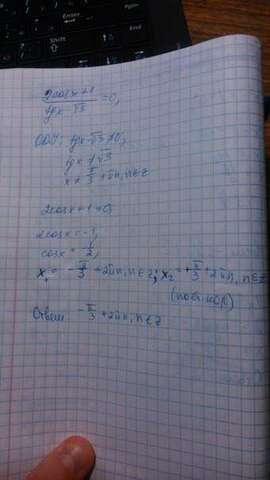 (2cosx+1)/(tgx-√3)=0,
ОДЗ: tgx-√3≠0,
tgx≠√3
x≠π/3+πn, n∈Z
2cosx+1=0,
2cosx=-1,
cosx=-1/2,
x₁=-π/3+2πn, n∈Z; x₂=+π/3+2πn, n∈Z
Ответ: -π/3+2πn, n∈Z